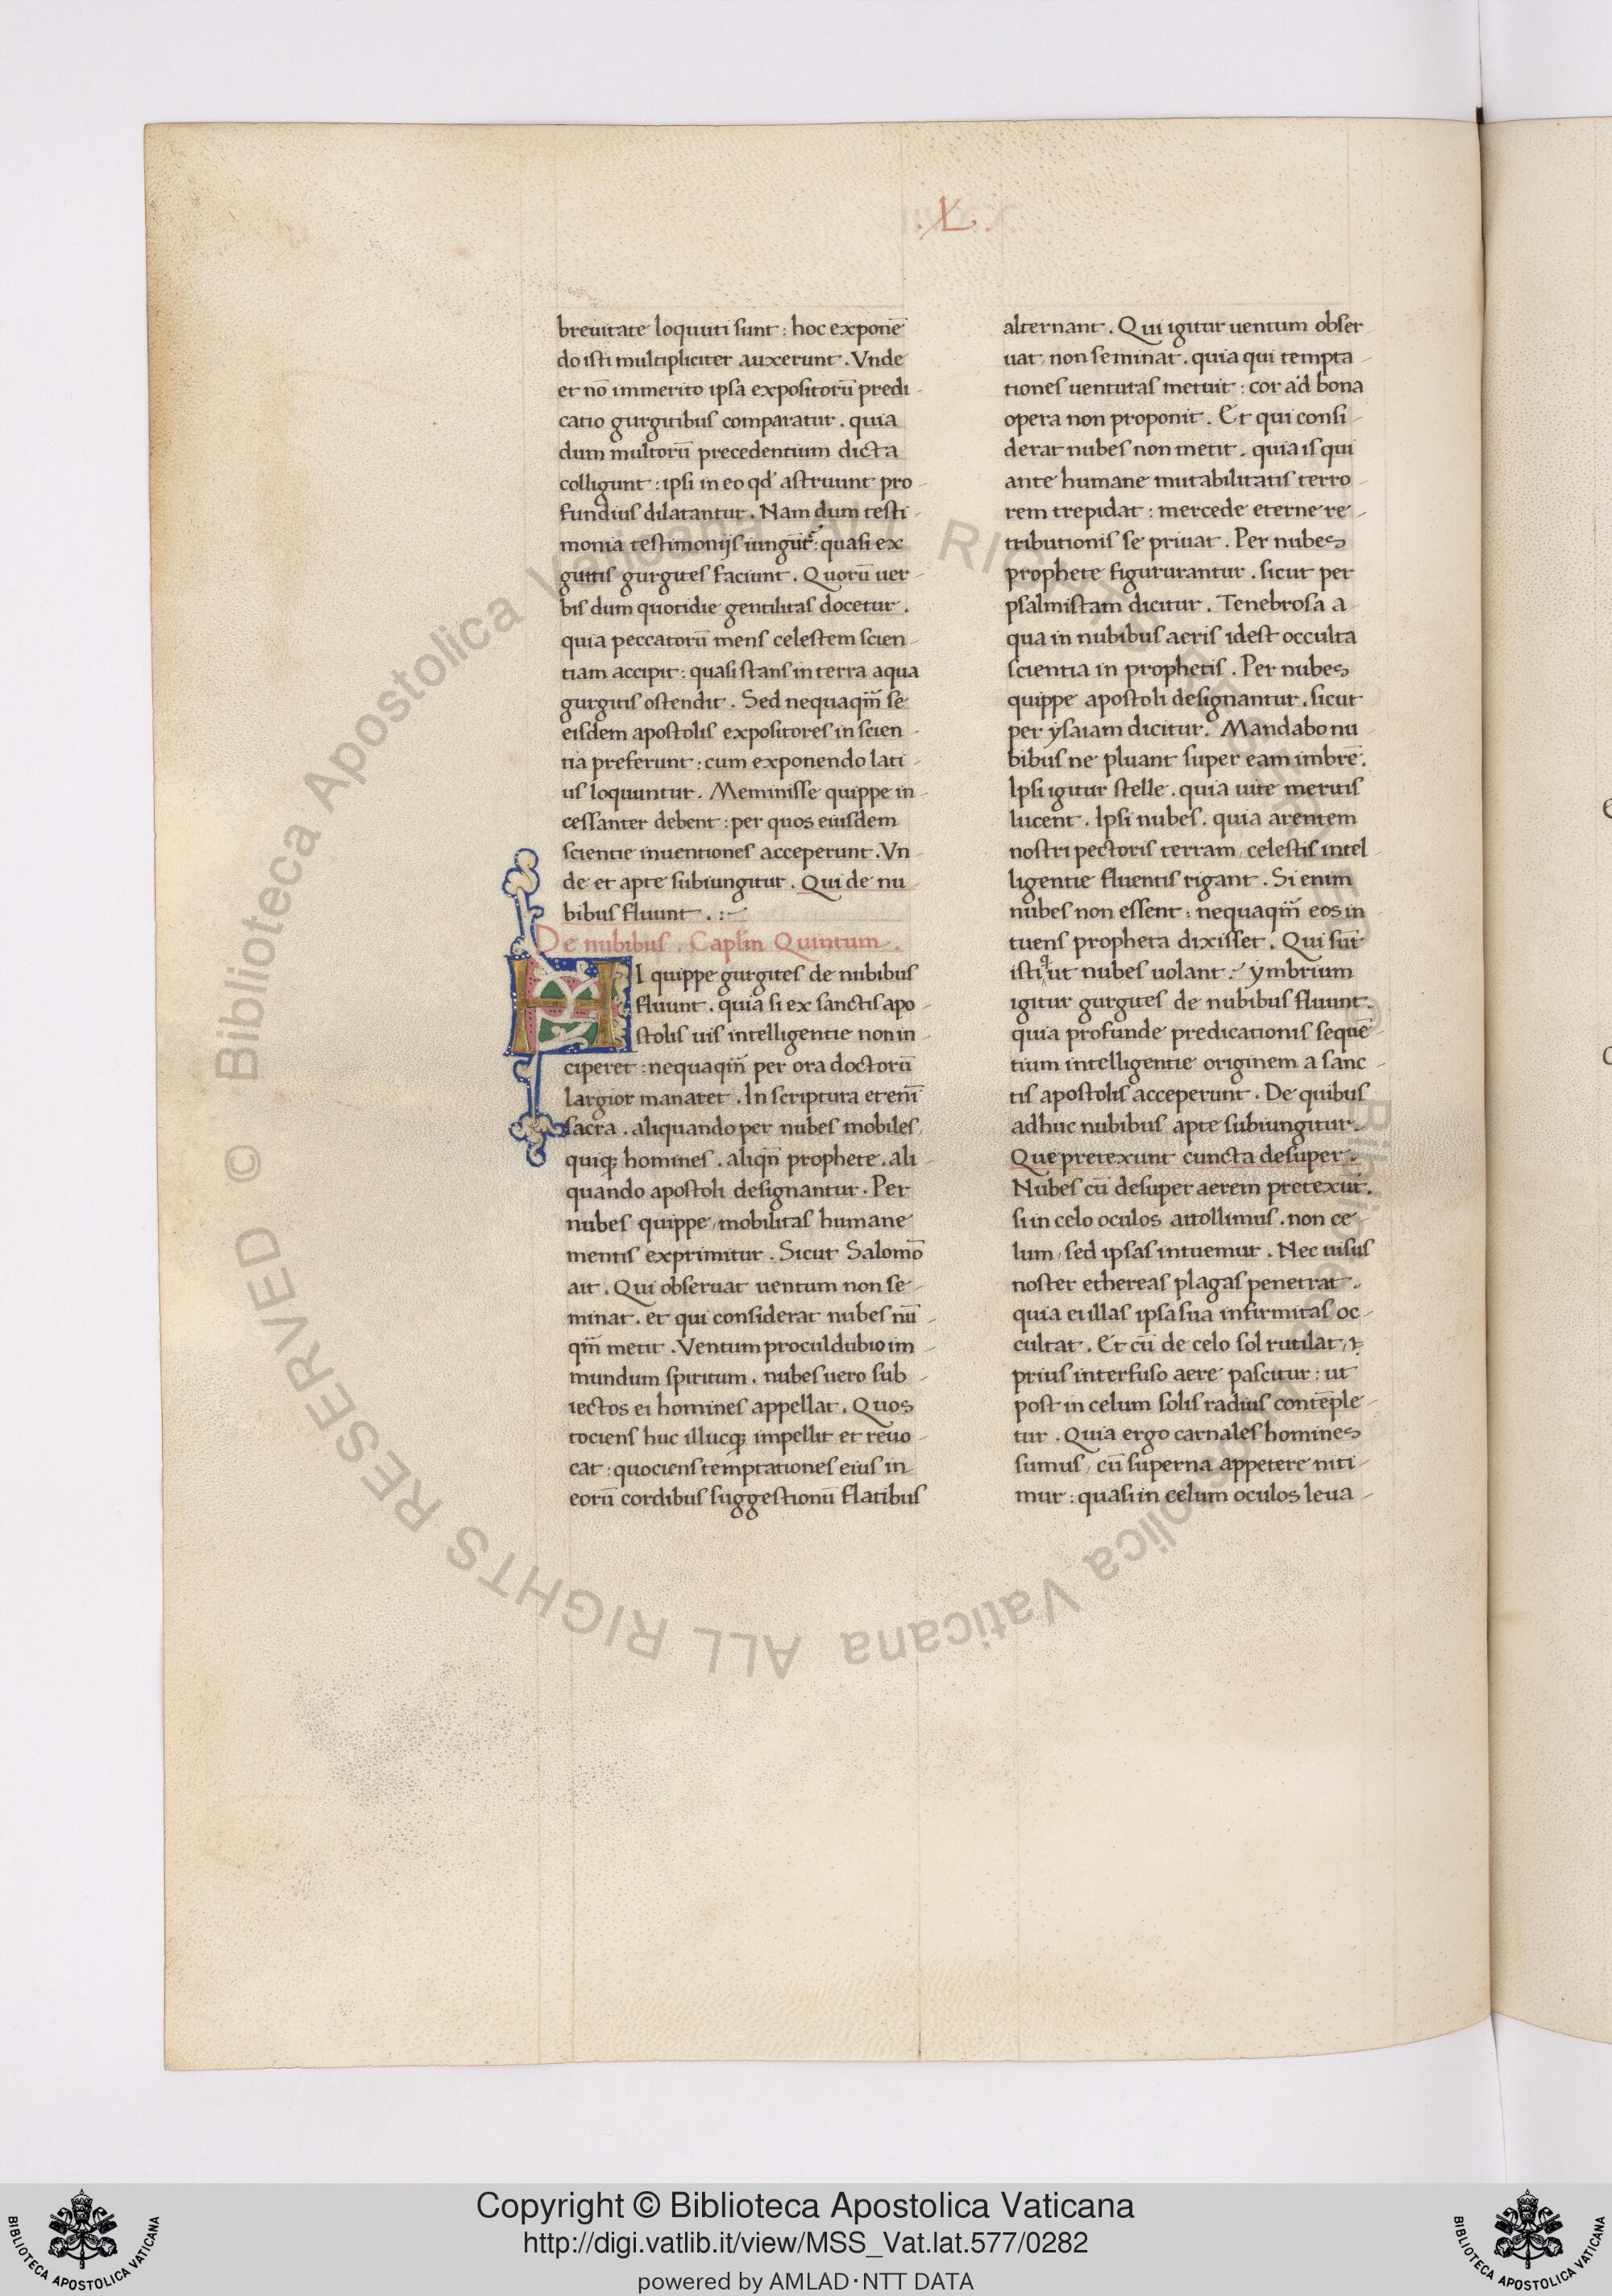 .XL.
breuitate loquuti sunt : hoc exponē
do isti multipliciter auxerunt . Vnde
et nō immerito ipsa expositorū predi-
catio gurgitibus comparatur . quia
dum multorū precedentium dicta
colligunt : ipsi in eo qđ astruunt pro-
fundius dilatantur . Nam dum testi-
monia testimonijs iungūt : quasi ex
guttis gurgites faciunt . Quorū uer-
bis dum quotidie gentilitas docetur .
quia peccatorū mens celestem scien-
tiam accipit : quasi stans in terra aqua
gurgitis ostendit . Sed nequaqm̄ se
eisdem apostolis expositores in scien-
tia preferunt : cum exponendo lati-
us loquuntur . Meminisse quippe in-
cessanter debent : per quos eiusdem
scientie inuentiones acceperunt . Vn-
de et apte subiungitur . Qui de nu-
bibus fluunt . :-
De nubibus . Capl̄m Quintum .
HI quippe gurgites de nubibus
fluunt . quia si ex sanctis apo-
stolis uis intelligentie non in-
ciperet : nequaqm̄ per ora doctorū
largior manaret . In scriptura etenī
sacra . aliquando per nubes mobiles
quiqȝ homines . aliqn̄ prophete . ali-
quando apostoli designantur . Per
nubes quippe mobilitas humane
mentis exprimitur . Sicut Salomō
ait . Qui obseruat uentum non se-
minat . et qui considerat nubes nū-
qm̄ metit . Ventum proculdubio im-
mundum spiritum . nubes uero sub-
iectos ei homines appellat . Quos
tociens huc illucqȝ impellit et reuo-
cat : quociens temptationes eius in
eorū cordibus suggestionū flatibus
alternant . Qui igitur uentum obser-
uat, non seminat . quia qui tempta-
tiones uenturas metuit : cor ad bona
opera non proponit . Et qui consi-
derat nubes non metit . quia is qui
ante humane mutabilitatis terro-
rem trepidat : mercede eterne re-
tributionis se priuat . Per nubes
prophete figururantur . sicut per
psalmistam dicitur . Tenebrosa a-
qua in nubibus aeris idest occulta
scientia in prophetis . Per nubes
quippe apostoli designantur . sicut
per ysaiam dicitur . Mandabo nu
bibus ne pluant super eam imbrē .
Ipsi igitur stelle . quia uite meritis
lucent . Ipsi nubes . quia arentem
nostri pectoris terram, celestis intel-
ligentie fluentis rigant . Si enim
nubes non essent : nequaqm̄ eos in-
tuens propheta dixisset . Qui sūt
isti q ut nubes uolant . ymbrium
igitur gurgites de nubibus fluunt .
quia profunde predicationis sequē-
tium intelligentie originem a sanc-
tis apostolis acceperunt . De quibus
adhuc nubibus apte subiungitur .
Que pretexunt cuncta desuper .
Nubes cū desuper aerem pretexūt .
si in celo oculos attollimus . non ce-
lum, sed ipsas intuemur . Nec uisus
noster ethereas plagas penetrat .
quia ei illas ipsa sua infirmitas oc-
cultat . Et cū de celo sol rutilat,
prius interfuso aere pascitur : ut
post in celum solis radius contēple-
tur . Quia ergo carnales homines
sumus, cū superna appetere niti-
mur : quasi in celum oculos leua-
© Biblioteca Apostolica Vaticana ALL RIGHTS RESERVED
© Biblioteca Apostolica Vaticana ALL RIGHTS RESERVED
Copyright © Biblioteca Apostolica Vaticana
http://digi.vatlib.it/view/MSS_Vat.lat.577/0282
powered by AMLAD·NTT DATA
BIBLIOTECA APOSTOLICA VATICANA
BIBLIOTECA APOSTOLICA VATICANA